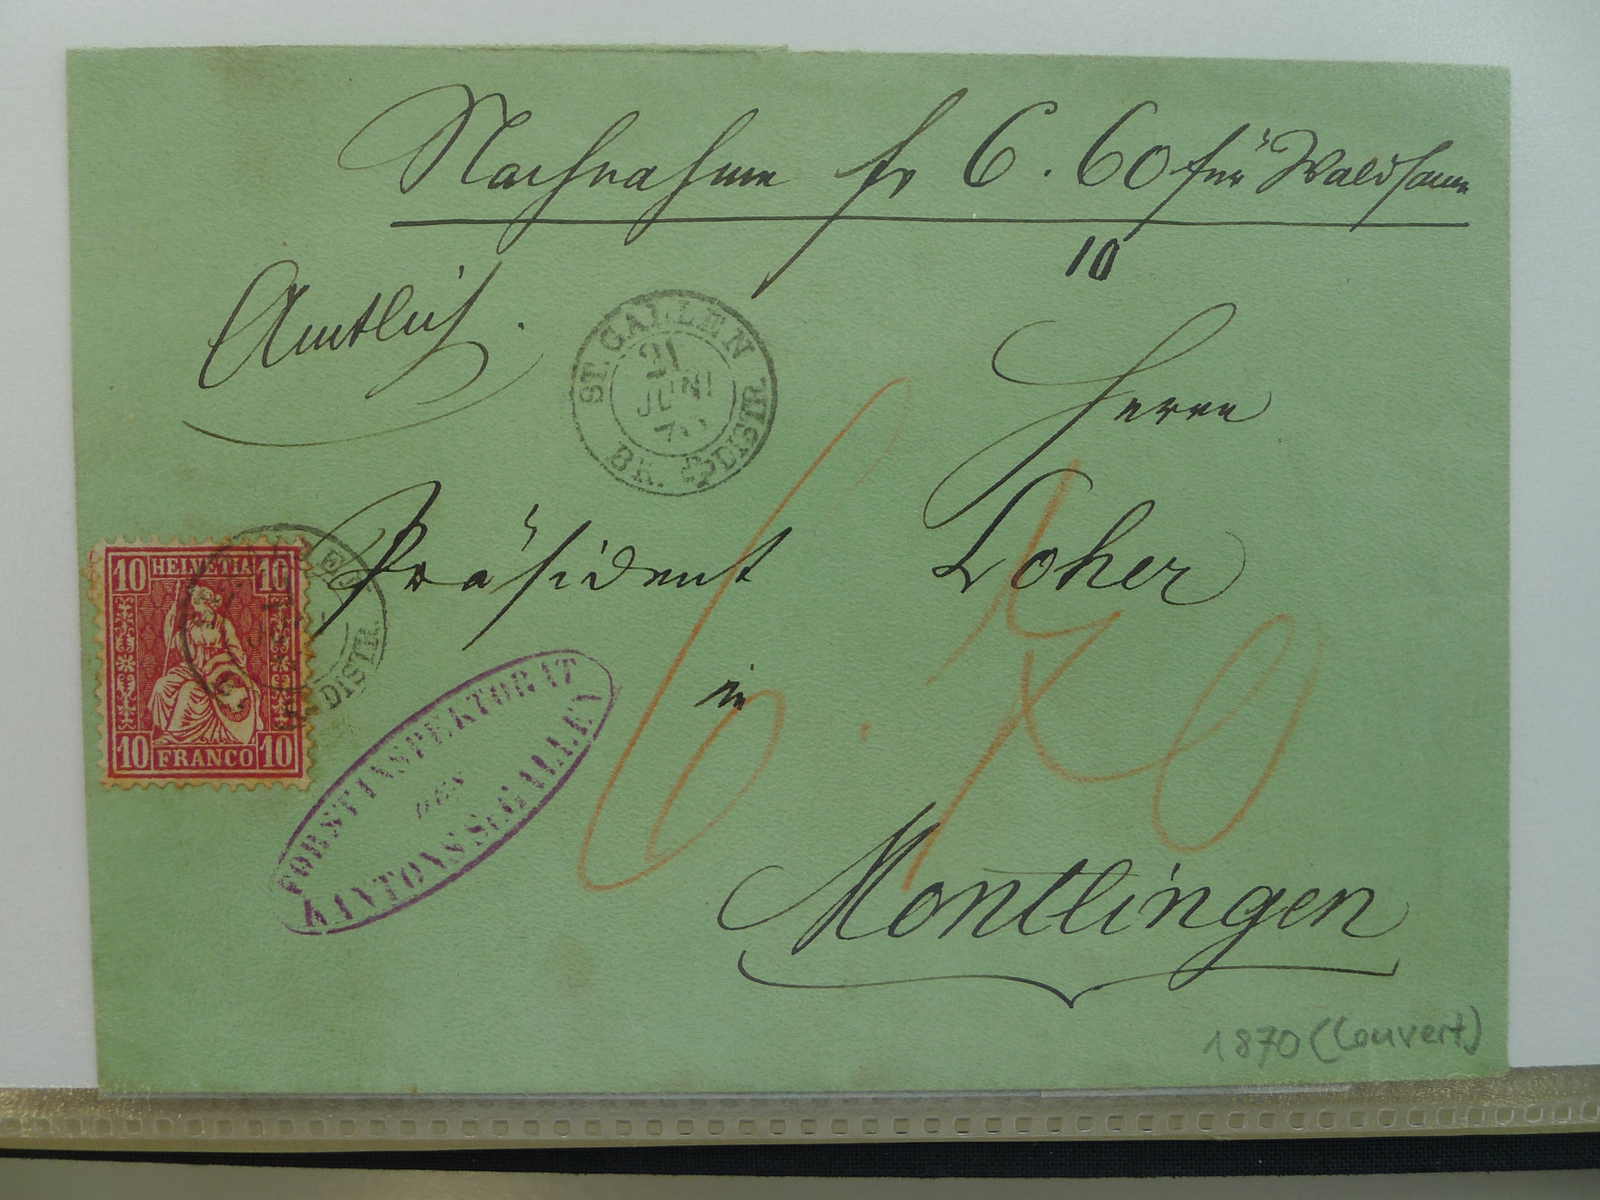 Nachnahme fr 6.60 für Waldsame
10
Amtlich.
ST. GALLEN
21
JUNI
70
BR. DISTR
Herrn
Präsident Loher
in
Montlingen
10 HELVETIA 10
10 FRANCO 10
DISTR.
FORSTINSPEKTORAT
DES
KANTONS St. GALLEN
6.70
1870 (Couvert)